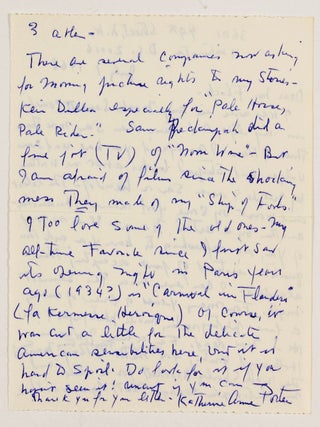 3 
There are several Companies now asking
for moving picture rights to my Stories-
Keir Dullea especially for "Pale Horse,
Pale Rider." Sam Peckinpah did a
fine job (TV) of "Noon Wine" - But
I am afraid of films since the shocking
mess They made of my "Ship of Fools."
I Too love some of the old ones - my
all-time Favorite since I first saw
its opening night in Paris years
ago (1934?) is "Carnival in Flanders"
(La Kermesse Heroique) Of course, it
was cut a little for the delicate
American sensibilities here, but it is
hard To Spoil. Do look for it if you
haven't seen it! uncut if you can
Thank you for your letter - Katherine Anne Porter